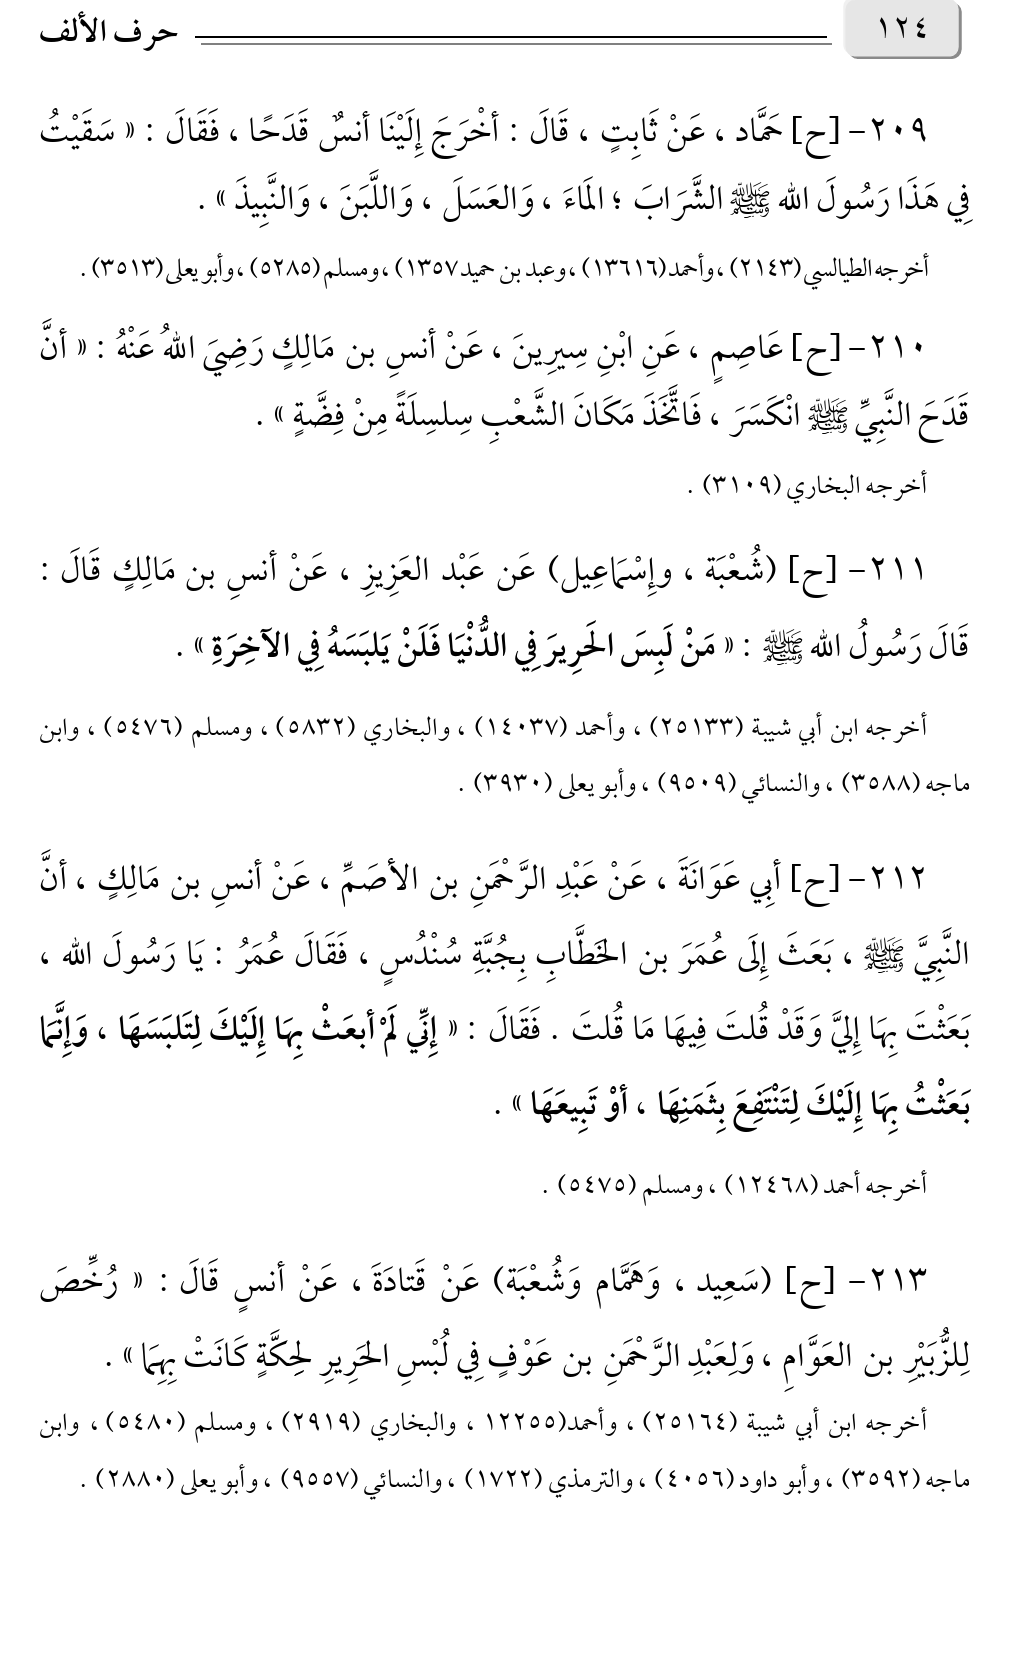 ١٢٤ حرف الألف
٢٠٩- [ح] حَمَّاد ، عَنْ ثَابِتٍ ، قَالَ : أخْرَجَ إِلَيْنَا أنسٌ قَدَحًا ، فَقَالَ : « سَقَيْتُ
فِي هَذَا رَسُولَ الله ﷺ الشَّرَابَ ؛ المَاءَ ، وَالعَسَلَ ، وَاللَّبَنَ ، وَالنَّبِيذَ » .
أخرجه الطيالسي (٢١٤٣) ، وأحمد (١٣٦١٦) ، وعبد بن حميد ١٣٥٧) ، ومسلم (٥٢٨٥) ، وأبو يعلى (٣٥١٣) .
٢١٠- [ح] عَاصِمٍ ، عَنِ ابْنِ سِيرِينَ ، عَنْ أنسِ بن مَالِكٍ رَضِيَ اللهُ عَنْهُ : « أنَّ
قَدَحَ النَّبِيِّ ﷺ انْكَسَرَ ، فَاتَّخَذَ مَكَانَ الشَّعْبِ سِلسِلَةً مِنْ فِضَّةٍ » .
أخرجه البخاري (٣١٠٩) .
٢١١- [ح] (شُعْبَة ، وإِسْمَاعِيل) عَن عَبْد العَزِيزِ ، عَنْ أنسِ بن مَالِكٍ قَالَ :
قَالَ رَسُولُ الله ﷺ : « مَنْ لَبِسَ الحَرِيرَ فِي الدُّنْيَا فَلَنْ يَلبَسَهُ فِي الآخِرَةِ » .
أخرجه ابن أبي شيبة (٢٥١٣٣) ، وأحمد (١٤٠٣٧) ، والبخاري (٥٨٣٢) ، ومسلم (٥٤٧٦) ، وابن
ماجه (٣٥٨٨) ، والنسائي (٩٥٠٩) ، وأبو يعلى (٣٩٣٠) .
٢١٢- [ح] أبِي عَوَانَةَ ، عَنْ عَبْدِ الرَّحْمَنِ بن الأصَمِّ ، عَنْ أنسِ بن مَالِكٍ ، أنَّ
النَّبِيَّ ﷺ ، بَعَثَ إِلَى عُمَرَ بن الخَطَّابِ بِجُبَّةِ سُنْدُسٍ ، فَقَالَ عُمَرُ : يَا رَسُولَ الله ،
بَعَثْتَ بِهَا إِليَّ وَقَدْ قُلتَ فِيهَا مَا قُلتَ . فَقَالَ : « إِنِّي لَمْ أبعَثْ بِهَا إِلَيْكَ لِتَلبَسَهَا ، وَإِنَّمَا
بَعَثْتُ بِهَا إِلَيْكَ لِتَنْتَفِعَ بِثَمَنِهَا ، أوْ تَبِيعَهَا » .
أخرجه أحمد (١٢٤٦٨) ، ومسلم (٥٤٧٥) .
٢١٣- [ح] (سَعِيد ، وَهَمَّام وَشُعْبَة) عَنْ قَتادَةَ ، عَنْ أنسٍ قَالَ : « رُخِّصَ
لِلزُّبَيْرِ بن العَوَّامِ ، وَلِعَبْدِ الرَّحْمَنِ بن عَوْفٍ فِي لُبْسِ الحَرِيرِ لِحِكَّةٍ كَانَتْ بِهِمَا » .
أخرجه ابن أبي شيبة (٢٥١٦٤) ، وأحمد(١٢٢٥٥ ، والبخاري (٢٩١٩) ، ومسلم (٥٤٨٠) ، وابن
ماجه (٣٥٩٢) ، وأبو داود (٤٠٥٦) ، والترمذي (١٧٢٢) ، والنسائي (٩٥٥٧) ، وأبو يعلى (٢٨٨٠) .